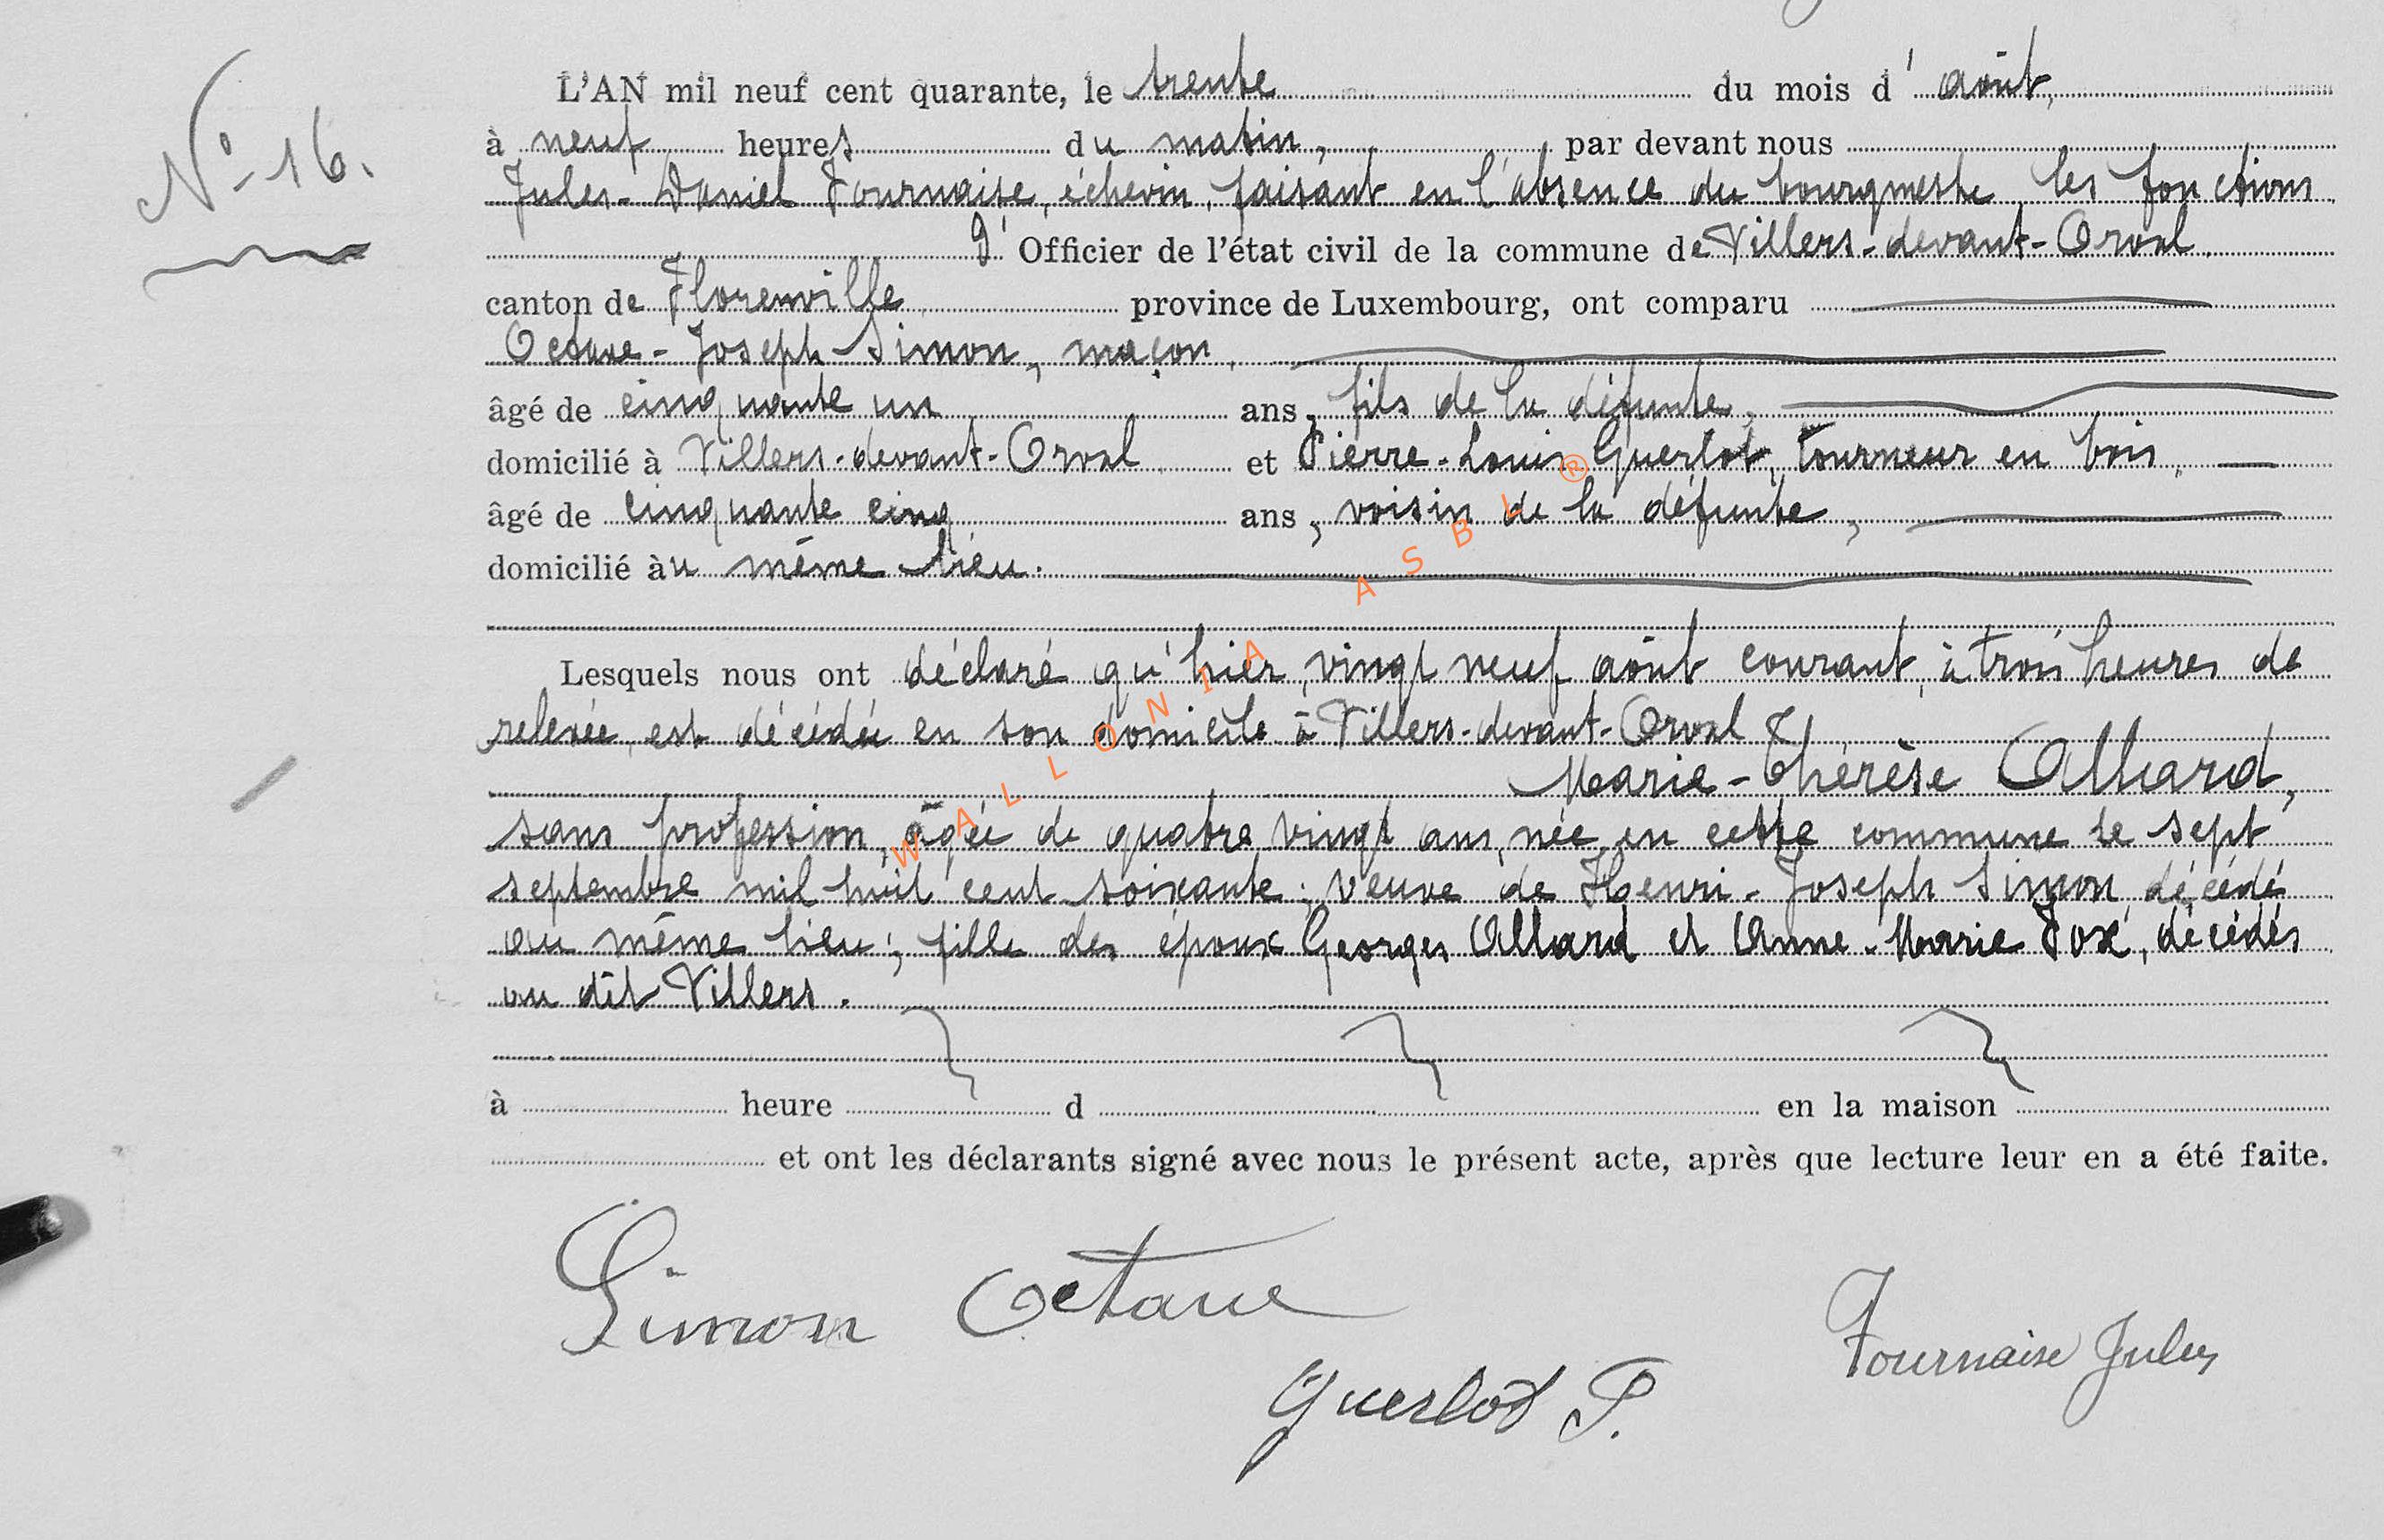 L'AN mil neuf cent quarante, le trente du mois d' août,
N° 16.
à neuf heures du matin, par devant nous
Jules-Daniel Fournaise, échevin, faisant en l'absence du bourgmestre les fonctions
d' Officier de l'état civil de la commune de Villers-devant-Orval
canton de Florenville province de Luxembourg, ont comparu
Octave-Joseph Simon, maçon,
âgé de cinquante un ans, fils de la défunte,
domicilié à Villers-devant-Orval et Pierre-Louis Guerlot, tourneur en bois,
âgé de cinquante cinq ans, voisin de la défunte,
domicilié au même lieu.
Lesquels nous ont déclaré qu'hier, vingt neuf août courant, à trois heures de
relevée, est décédée en son domicile à Villers-devant-Orval
Marie-Thérèse Allard,
sans profession, âgée de quatre vingt ans, née en cette commune le sept
septembre mil huit cent soixante; veuve de Henri-Joseph Simon, décédé
au même lieu; fille des époux Georges Allard et Anne-Marie, décédés
au dit Villers.
à heure d en la maison
et ont les déclarants signé avec nous le présent acte, après que lecture leur en a été faite.
Simon Octave
Fournaise Jules
Guerlot P.
WALLONIA ASBL ®